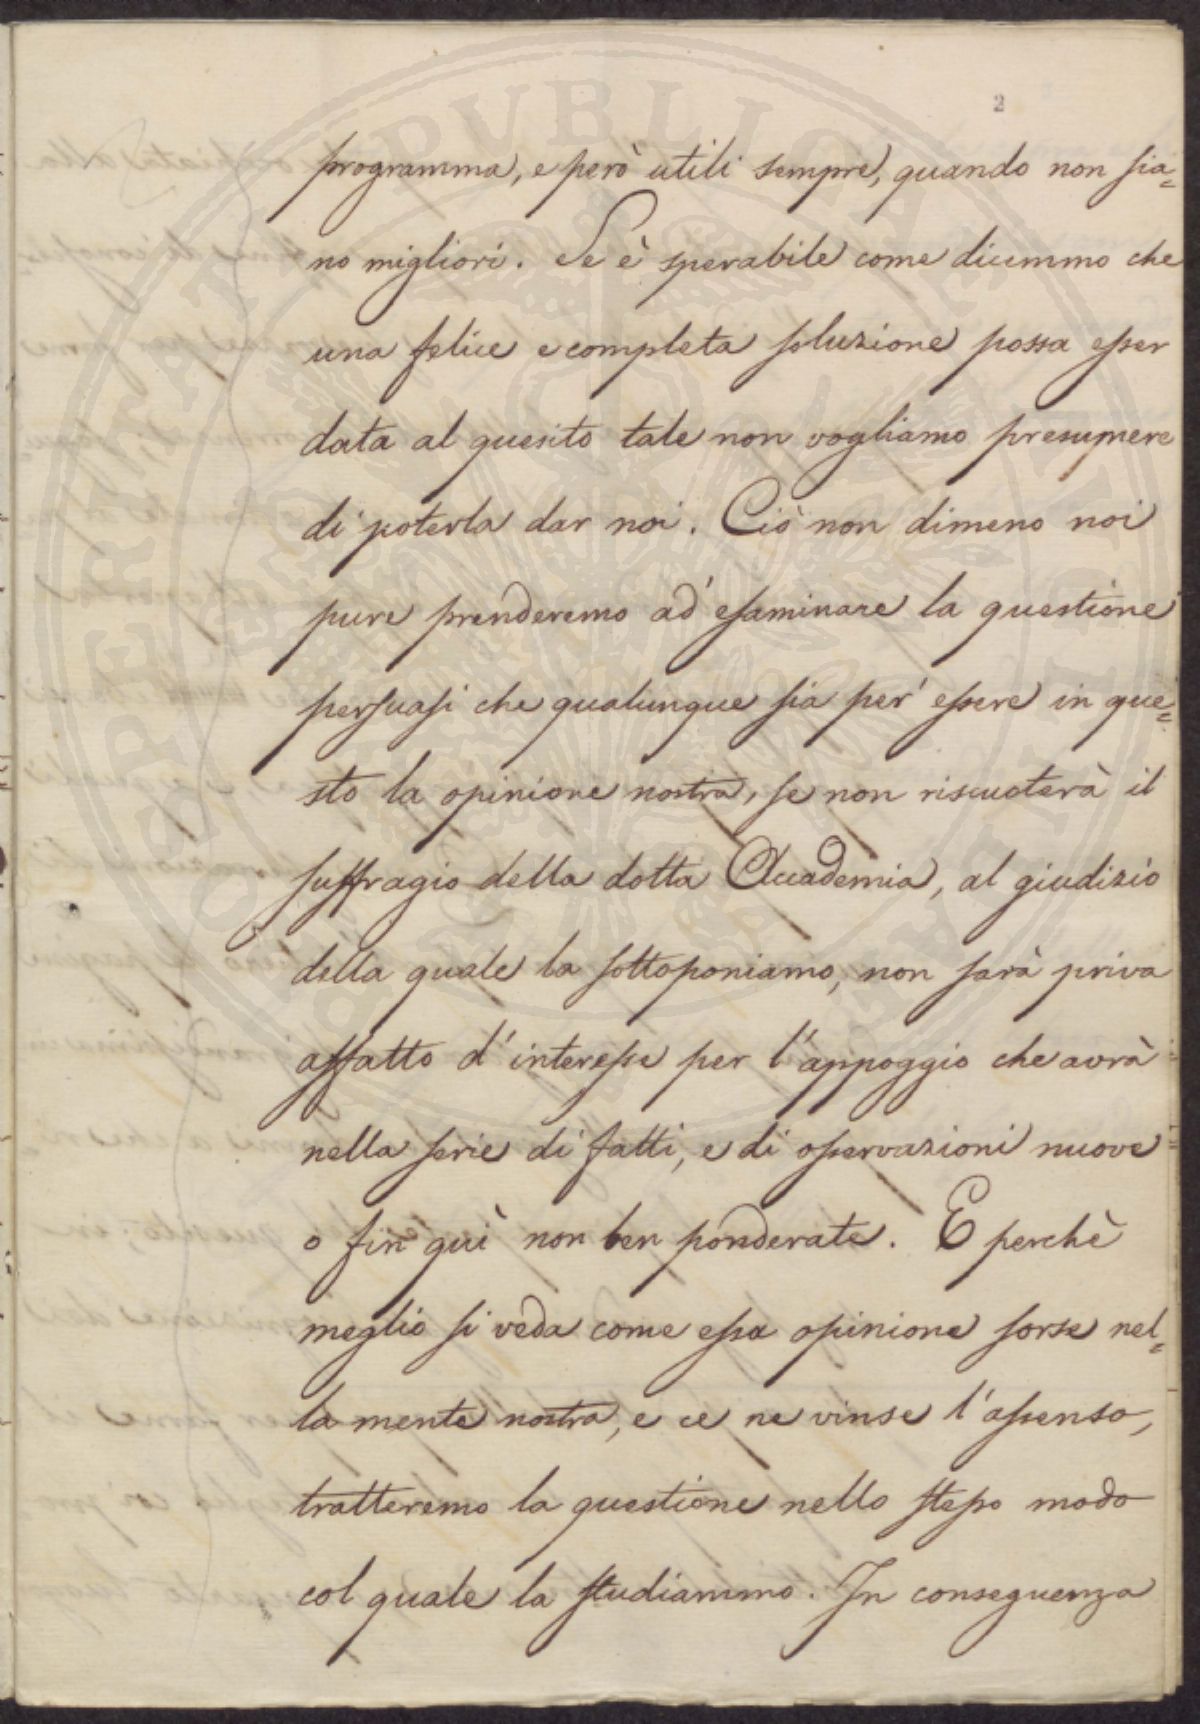 2
programma, e però utili sempre, quando non sia=
no migliori. Se è sperabile come dicemmo che
una felice e completa soluzione possa esser
data al quesito tale non vogliamo presumere
di poterla dar noi. Ciò non dimeno noi
pure prenderemo ad esaminare la questione
persuasi che qualunque sia per essere in que=
sto la opinione nostra, se non riscuoterà il
suffragio della dotta Accademia, al giudizio
della quale la sottoponiamo, non sarà priva
affatto d'interesse per l'appoggio che avrà
nella serie di fatti, e di osservazioni nuove
o fin quì non ben ponderate. E perchè
meglio si veda come essa opinione sorse nel=
la mente nostra, e ce ne vinse l'assenso,
tratteremo la questione nello stesso modo
col quale la studiammo. In conseguenza